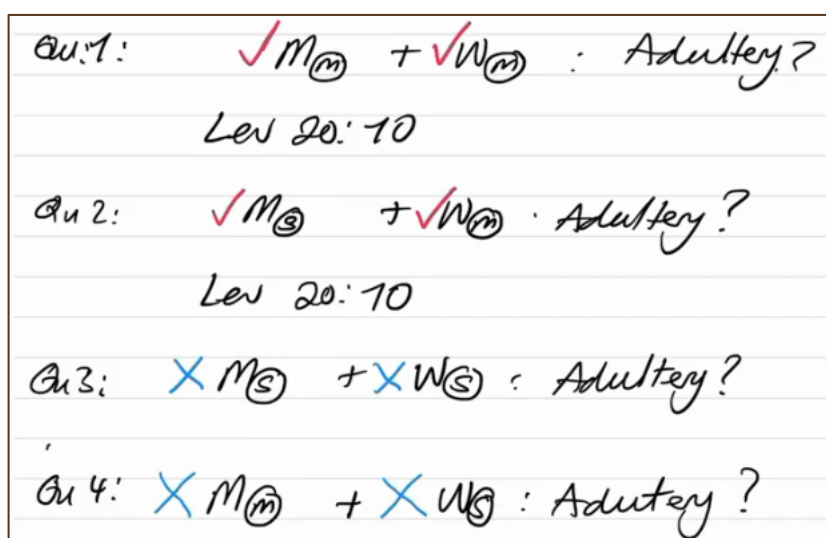 Qu:1: ✓M(m) + ✓W(m) : Adultery?
Lev 20:10
Qu 2: ✓M(s) + ✓W(m) . Adultery?
Lev 20:10
Qu3: X M(s) + X W(s) : Adultery?
Qu 4: X M(m) + X W(s) : Adutery?